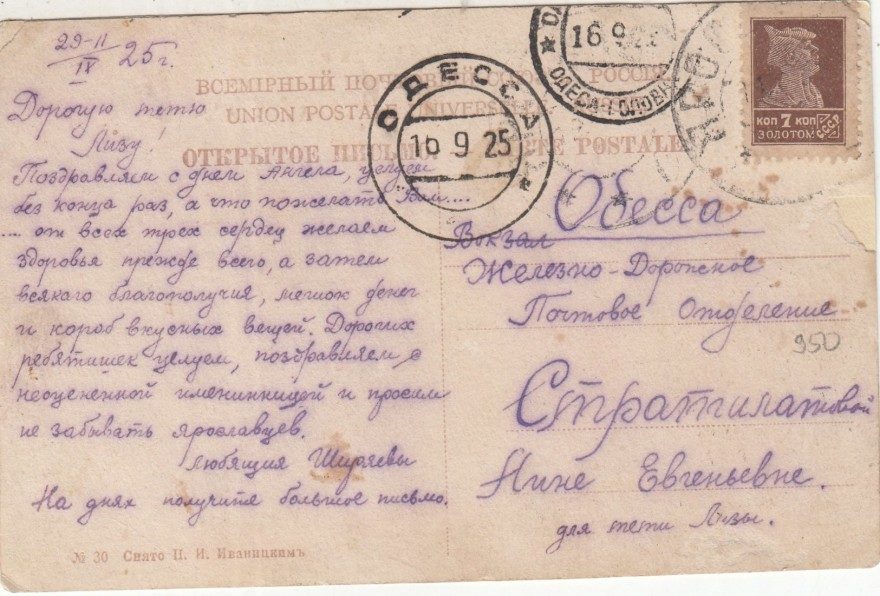 29-11
IX 25 г.
Дорогую тетю
Лизу!
Поздравляем с днем Ангела, целуем
без конца раз, а что пожелать Вам....
... от всех трех сердец желаем
здоровья прежде всего, а затем
всякаго благополучия, мешок денег
и короб вкусных вещей. Дорогих
ребятишек целуем, поздравляем с
неоцененной именинницей и просим
не забывать ярославцев.
Любящия Ширяевы
На днях получите большое письмо.
№ 30 Снято И. И. Иваницкимъ
ВСЕМІРНЫЙ РОССІЯ
UNION POSTALE UNIVERSELLE
ОТКРЫТОЕ ПИСЬМО POSTALE
ОДЕССА
16 9 25
16 9 25
ОДЕСА-ГОЛОВН
КОП 7 КОП
ЗОЛОТОМ
СССР
Одесса
Вокзал
Железно-Дорожное
Почтовое Отделение
950
Стратилатовой
Нине Евгеньевне.
для тети Лизы.